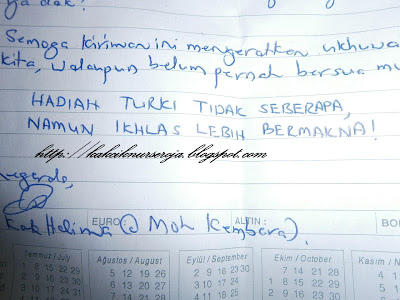 ya dak?
Semoga kiriman ini mengeratkan ukhuwa
kita, walaupun belum pernah bersua mu
HADIAH TURKI TIDAK SEBERAPA,
NAMUN IKHLAS LEBIH BERMAKNA!
http://kakciknurseroja.blogspot.com
Kak Halima @ Moh Kembara).
EURO ALTIN: BO
Temmuz / July Ağustos / August Eylül / September Ekim / October Kasım / N
1 8 15 22 29 5 12 19 26 2 9 16 23 30 7 14 21 28
2 9 16 23 30 6 13 20 27 3 10 17 24 1 8 15 22 29
3 10 17 24 31 7 14 21 28 4 11 18 25 2 9 16 23 30